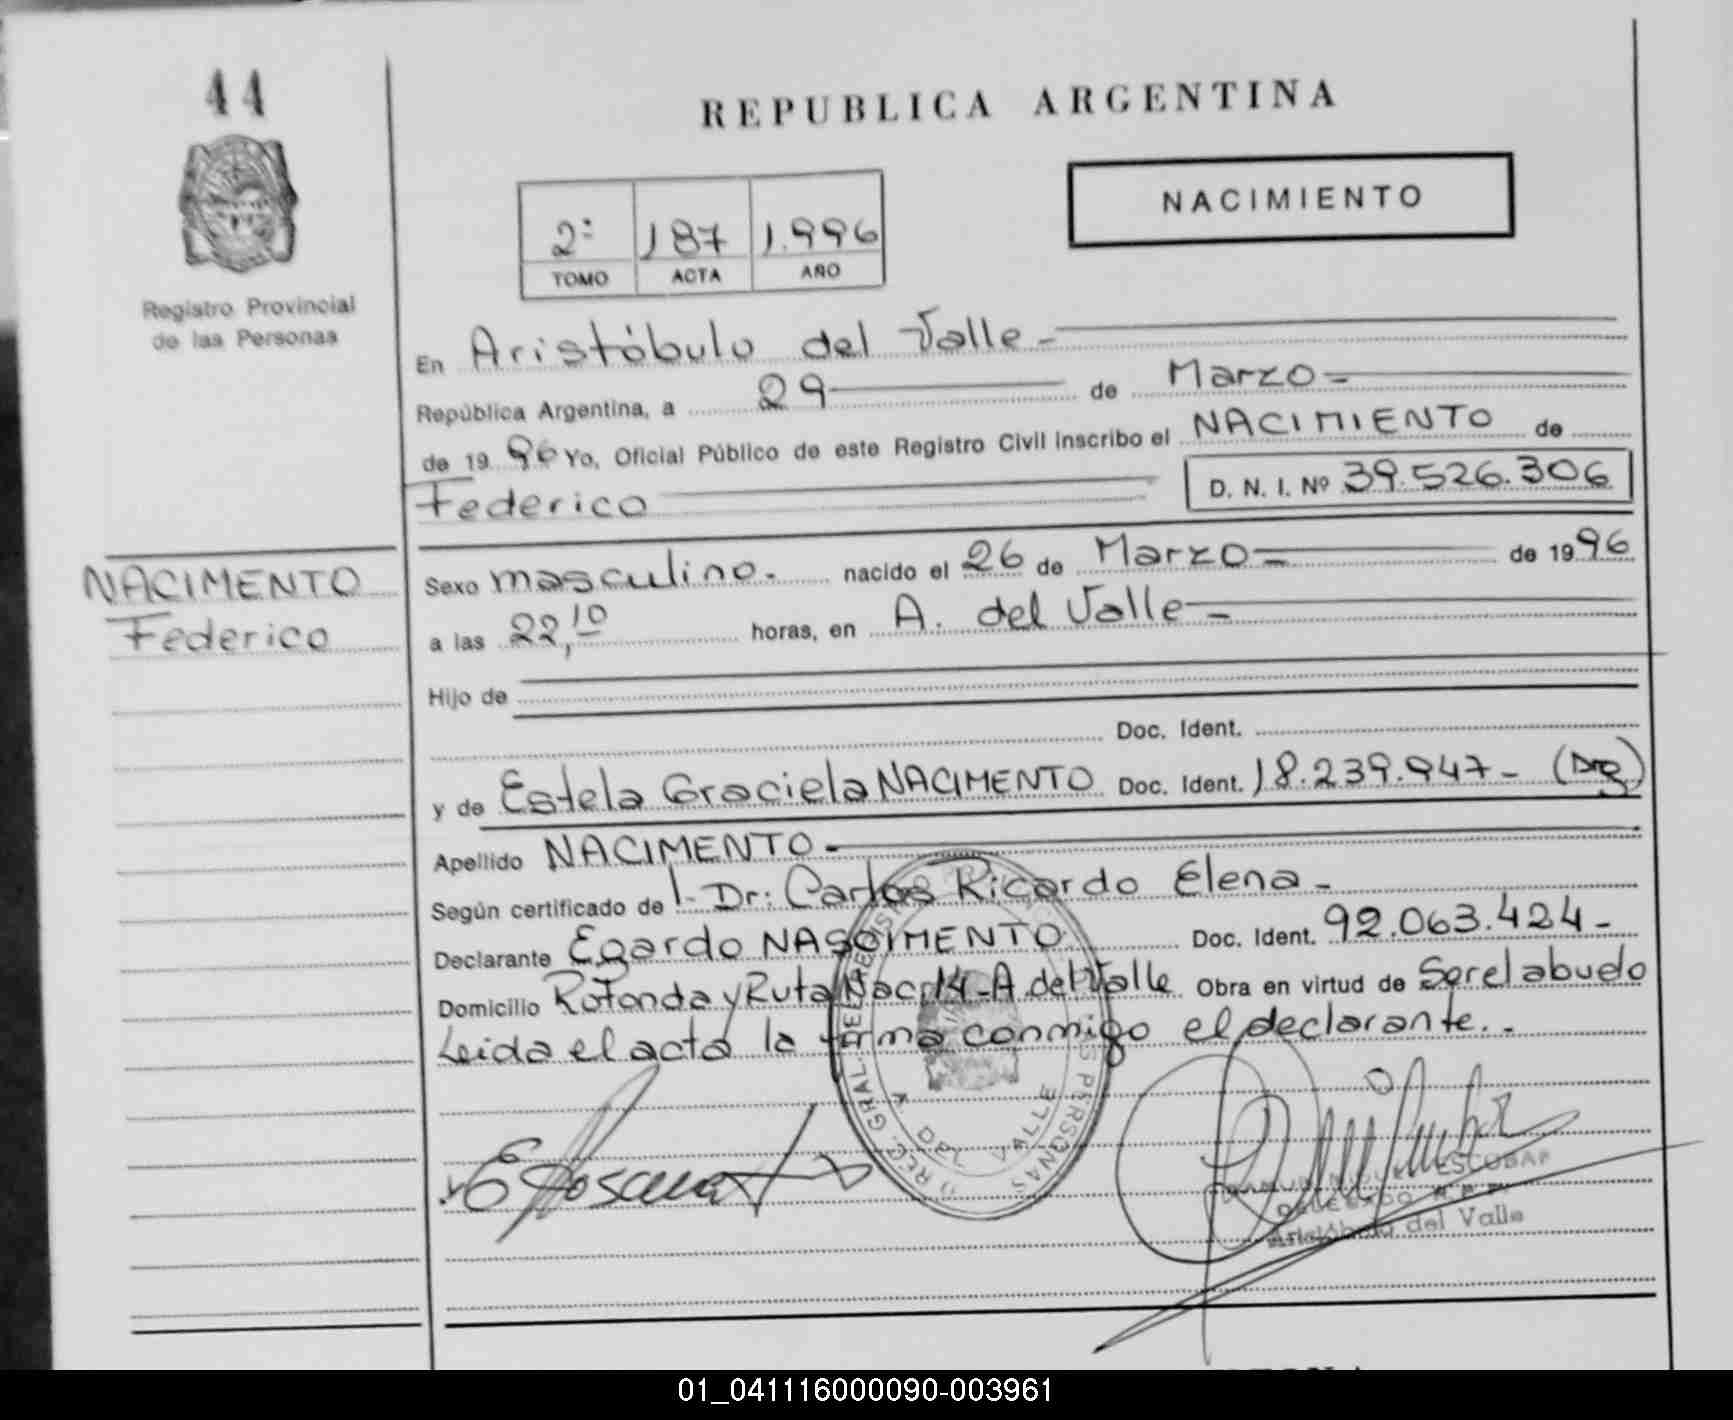 44
REPUBLICA ARGENTINA
NACIMIENTO
2º 187 1.996
TOMO ACTA AÑO
Registro Provincial
de las Personas
En Aristóbulo del Valle -
República Argentina, a 29 de Marzo -
de 19 96 Yo, Oficial Público de este Registro Civil inscribo el NACIMIENTO de
Federico
D. N. I. Nº 39.526.306
NACIMENTO
Federico
Sexo masculino. nacido el 26 de Marzo - de 19 96
a las 22,10 horas, en A. del Valle -
Hijo de
Doc. Ident.
y de Estela Graciela NACIMENTO Doc. Ident. 18.239.947 - (Arg)
Apellido NACIMENTO -
Según certificado de l. Dr: Carlos Ricardo Elena -
Declarante Egardo NASCIMENTO Doc. Ident. 92.063.424 -
Domicilio Rotonda y Ruta Nac. 14 - A. del Valle Obra en virtud de Ser el abuelo
Leida el acta la firma conmigo el declarante. -
REG. GRAL. DEL PERSONAS
VALLE
ESCOBAR
Aristóbulo del Valle
01_041116000090-003961